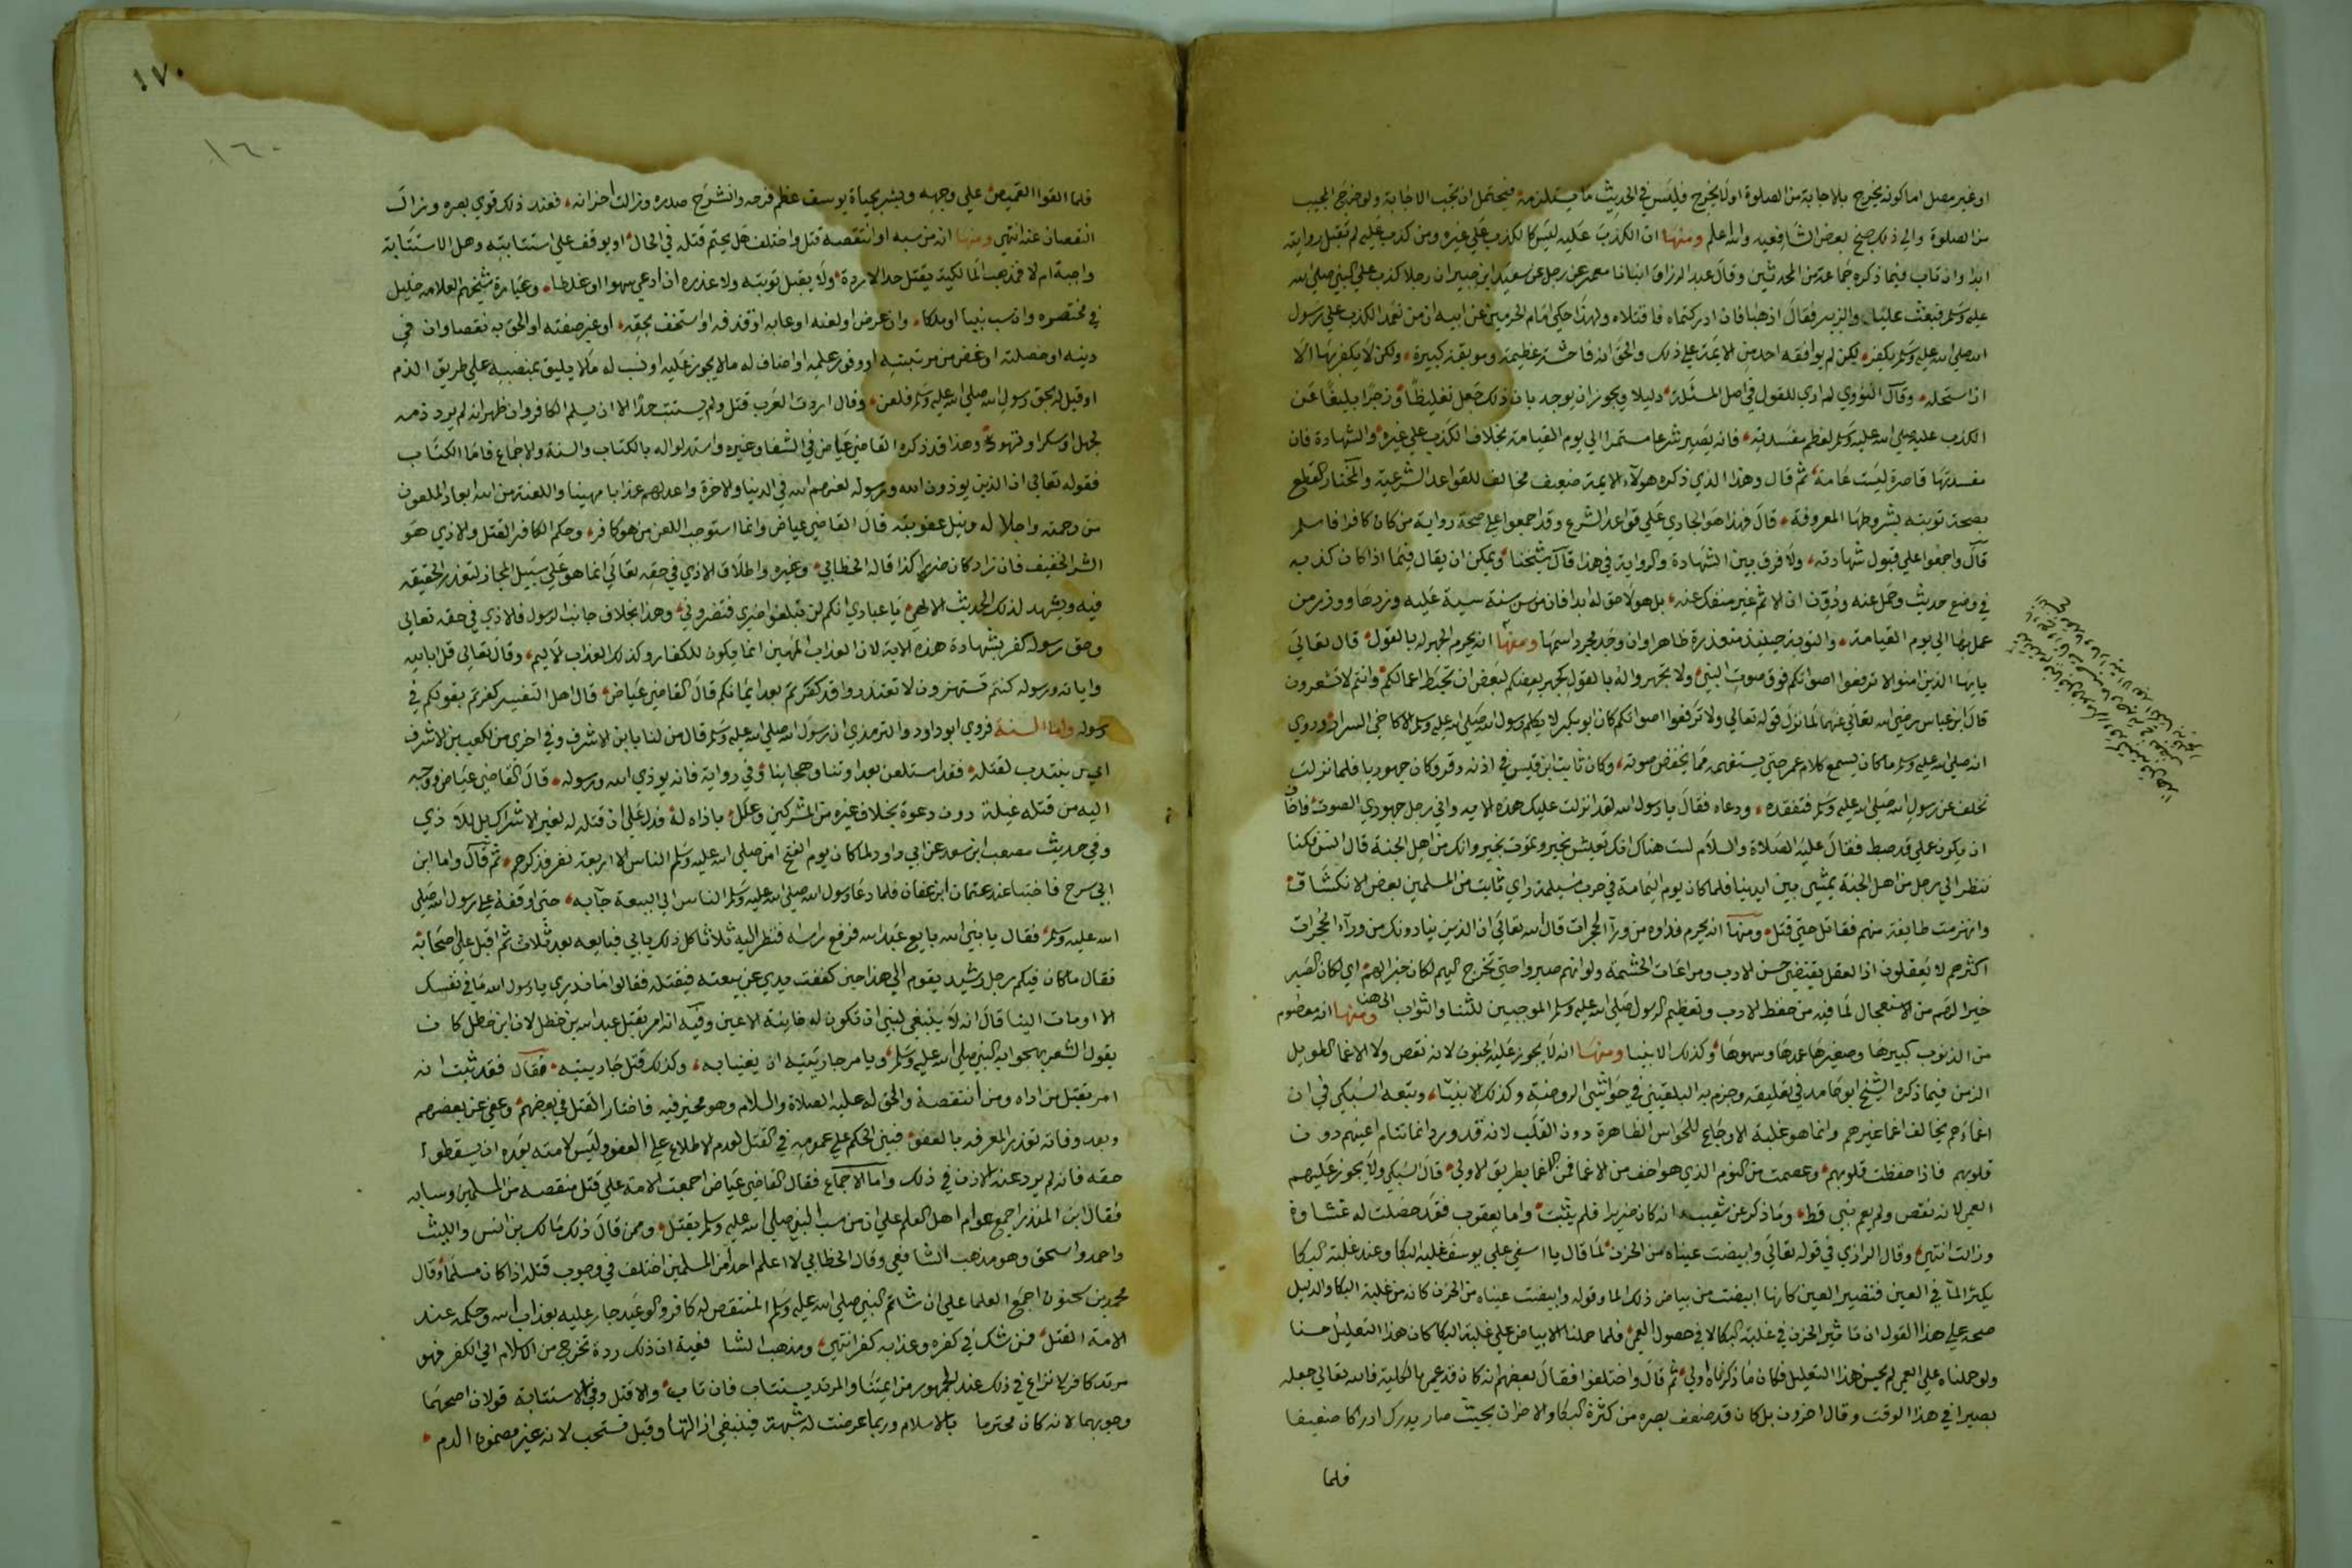 او غير مصل اما كونه يخرج بالاجابة من الصلوة او لا يخرج فليس في الحديث ما يستلزمه فيحتمل ان تجب الاجابة ولو خرج المجيب
من الصلوة والي ذلك جنح بعض الشافعيه والله اعلم ومنها ان الكذب عليه ليس كالكذب علي غيره ومن كذب عليه لم تقبل روايته
ابدا وان تاب فيما ذكره جماعة من المحدثين وقال عبد الرزاق انبانا معمر عن رجل عن سعيد ابن جبير ان رجلا كذب علي النبي صلي الله
عليه وسلم فبعث عليا والزبير فقال اذهبا فان ادركتماه فاقتلاه ولهذا حكي امام الحرمين عن ابيه ان من تعمد الكذب علي رسول
الله صلي الله عليه وسلم يكفر لكن لم يوافقه احد من الايمة علي ذلك والحق انه فاحشة عظيمة وموبقة كبيرة ولكن لا يكفر بها الا
ان استحله وقال النووي لم اري للقول في اصل المسئلة دليلا ويجوز ان يوجد بان ذلك جعل تغليظا وزجرا بليغا عن
الكذب عليه صلي الله عليه وسلم لعظم مفسدته فانه يصير شرعا مستمرا الي يوم القيامة بخلاف الكذب علي غيره والشهادة فان
مفسدتها قاصرة ليست عامة ثم قال وهذا الذي ذكره هولاء الايمة ضعيف مخالف للقواعد الشرعية والمختار القطع
بصحة توبته بشروطها المعروفة قال فهذا هو الجاري علي قواعد الشرع وقد اجمعوا علي صحة رواية من كان كافرا فاسلم
قال واجمعوا علي قبول شهادته ولا فرق بين الشهادة والرواية في هذا قال شيخنا ويمكن ان يقال فيما اذا كان كذبه
في وضع حديث وحمل عنه ودون ان الاثم غير منفك عنه بل هو لاحق له ابدا فان من سن سنة سيية عليه وزرها ووزر من
عمل بها الي يوم القيامة والتوبة حينيذ متعذرة ظاهرا وان وجد مجرد اسمها ومنها انه يحرم الجهر له بالقول قال تعالي
يايها الذين امنوا لا ترفعوا اصواتكم فوق صوت النبي ولا تجهروا له بالقول كجهر بعضكم لبعض ان تحبط اعمالكم وانتم لا تشعرون
قال ابن عباس رضي الله تعالي عنهما لما نزل قوله تعالي ولا ترفعوا اصواتكم كان ابو بكر لا يكلم رسول الله صلي الله عليه وسلم الا كاخي السرار وروي
انه صلي الله عليه وسلم ما كان يسمع كلام عمر حتي يستفهمه مما يخفض صوته وكان ثابت ابن قيس في اذنه وقر وكان جهوريا فلما نزلت
تخلف عن رسول الله صلي الله عليه وسلم فتفقده ودعاه فقال يا رسول الله لقد انزلت عليك هذه الايه واني رجل جهوري الصوت واخاف
ان يكون عملي قد حبط فقال عليه الصلاة والسلام لست هناك انك تعيش بخير وتموت بخير وانك من اهل الجنة قال انس فكنا
ننظر الي رجل من اهل الجنة يمشي بين ايدينا فلما كان يوم اليمامة في حرب مسيلمة راي ثابت من المسلمين بعض الانكشاف
وانهزمت طايفة منهم فقاتل حتي قتل ومنها انه يحرم نداوه من ورآ الحجرات قال الله تعالي ان الذين ينادونك من ورآء الحجرات
اكثرهم لا يعقلون اذ العقل يقتضي حسن الادب ومراعات الحشمة ولو انهم صبروا حتي تخرج اليهم لكان خيرا لهم اي لكان الصبر
خيرا لهم من الاستعجال لما فيه من حفظ الادب وتعظيم الرسول صلي الله عليه وسلم الموجبين للثنا والثواب الي هنا ومنها انه معصوم
من الذنوب كبيرها وصغيرها عمدها وسهوها وكذلك الانبيا ومنها انه لا يجوز عليه الجنون لانه نقص ولا الاغما الطويل
الزمن فيما ذكره الشيخ ابو حامد في تعليقه وجزم به البلقيني في حواشي الروضة وكذلك الانبيآء وتبعه السبكي في ان
اغماءهم يخالف اغما غيرهم وانما هو غلبة الاوجاع للحواس الظاهرة دون القلب لانه قد ورد انما تنام اعينهم دون
قلوبهم فاذا حفظت قلوبهم وعصمت من النوم الذي هو اخف من الاغما فمن الاغما بطريق الاولي قال السبكي ولا يجوز عليهم
العمي لانه نقص ولم يعم نبي قط وما ذكر عن شعيب انه كان ضريرا فلم يثبت واما يعقوب فقد حصلت له غشاوة
وزالت انتهي وقال الرازي في قوله تعالي وابيضت عيناه من الحزن لما قال يا اسفي علي يوسف غلبه البكا وعند غلبة البكا
يكثر المآ في العين فتصير العين كانها ابيضت من بياض ذلك الما وقوله وابيضت عيناه من الحزن كانه من غلبة البكا والدليل
صحة علي هذا القول ان تاثير الحزن في غلبة البكا لا في حصول العمي فلما حملنا الابياض علي غلبة البكا كان هذا التعليل حسنا
ولو حملناه علي العمي لم يحسن هذا التعليل فكان ما ذكرناه اولي ثم قال واختلفوا فقال بعضهم انه كان قد عمي بالكلية فالله تعالي جعله
بصيرا في هذا الوقت وقال اخرون بل كان قد ضعف بصره من كثرة البكا والاحزان بحيث صار يدرك ادراكا ضعيفا
فلما
١٧٠
١٦٠
فلما القوا القميص علي وجهه وبشر بحياة يوسف عظم فرحه وانشرح صدره وزالت احزانه فعند ذلك قوي بصره وزال
النقصان عنه انتهي ومنها ان من سبه او انتقصه قتل واختلف هل يحتم قتله في الحال او يوقف علي استتابته وهل الاستتابة
واجبة ام لا فمذهب المالكية يقتل حدا لا ردة ولا يقبل توبته ولا عذره ان ادعي سهوا او غلطا وعبارة شيخهم العلامه خليل
في مختصره وان سب نبيا او ملكا وان عرض او لعنه او عابه او قذفه او استخف بحقه او غير صفته او الحق به نقصا وان في
دينه او خصلته او غض من مرتبته او وفور علمه او اضاف له ما لا يجوز عليه او نسب له ما لا يليق بمنصبه علي طريق الذم
او قيل له بحق رسول الله صلي الله عليه وسلم فلعن وقال اردت العقرب قتل ولم يستتب حدا الا ان يسلم الكافر وان ظهر انه لم يرد ذمه
لجهل او سكر او تهور وهذا قد ذكره القاضي عياض في الشفا وغيره واستدلوا له بالكتاب والسنة والاجماع فاما الكتاب
فقوله تعالي ان الذين يوذون الله ورسوله لعنهم الله في الدنيا والاخرة واعد لهم عذابا مهينا واللعنة من الله ابعاد الملعون
من رحمته واحلاله وبيل عقوبته قال القاضي عياض وانما استوجب اللعن من هو كافر وحكم الكافر القتل والاذي هو
الشر الخفيف فان زاد كان ضررا كذا قاله الخطابي وغيره واطلاق الاذي في حقه تعالي انما هو علي سبيل المجاز لتعذر الحقيقه
فيه ويشهد لذلك الحديث الالهي يا عبادي انكم لن تبلغوا ضري فتضروني وهذا بخلاف جانب الرسول فالاذي في حقه تعالي
وحق رسوله كفر بشهادة هذه الاية لان العذاب المهين انما يكون للكفار وكذلك العذاب الاليم وقال تعالي قل ابالله
واياته ورسوله كنتم تستهزون لا تعتذروا قد كفرتم بعد ايمانكم قال القاضي عياض قال اهل التفسير كفرتم بقولكم في
رسوله واما السنة فروي ابو داود والترمذي ان رسول الله صلي الله عليه وسلم قال من لنا بابن الاشرف وفي اخري من لكعب بن الاشرف
اي من ينتدب لقتله فقد استعلن بعداوتنا وهجاينا وفي رواية فانه يوذي الله ورسوله قال القاضي عياض ووجه
اليه من قتله غيلة دون دعوة بخلاف غيره من المشركين وعلل باذاه له فدل علي ان قتله له لغير الاشراك بل للاذي
وفي حديث مصعب ابن سعد عن ابي داود لما كان يوم الفتح امن صلي الله عليه وسلم الناس الا اربعة نفر فذكرهم ثم قال واما ابن
ابي سرح فاختبا عند عثمان ابن عفان فلما دعا رسول الله صلي الله عليه وسلم الناس الي البيعة جآ به حتي اوقفه علي رسول الله صلي
الله عليه وسلم فقال يا نبي الله بايع عبد الله فرفع راسه فنظر اليه ثلاثا كل ذلك يابي فبايعه بعد ثلاث ثم اقبل علي اصحابه
فقال ما كان فيكم رجل رشيد يقوم الي هذا حين كففت يدي عن بيعته فيقتله فقالوا ما ندري يا رسول الله ما في نفسك
الا اومات الينا قال انه لا ينبغي لنبي ان تكون له خاينة الاعين وفيه انه امر بقتل عبد الله بن خطل لان ابن خطل كان
يقول الشعر يهجوا به النبي صلي الله عليه وسلم ويامر جاريتيه ان يغنيا به وكذلك قتل جاريتيه فقال فقد ثبت انه
امر بقتل من اذاه ومن انتقصه والحق له عليه الصلاة والسلام وهو مخير فيه فاختار القتل في بعضهم وعفي عن بعضهم
وبعد وفاته تعذر المعرفه بالعفو فبقي الحكم علي عمومه في القتل لعدم الاطلاع علي العفو وليس لامته بعده ان يسقطوا
حقه فانه لم يرد عنه الاذن في ذلك واما الاجماع فقال القاضي عياض اجمعت الامة علي قتل منقصه من المسلمين وسابه
فقال ابن المنذر اجمع عوام اهل العلم علي ان من سب النبي صلي الله عليه وسلم يقتل وممن قال ذلك مالك بن انس والليث
واحمد واسحق وهو مذهب الشافعي وقال الخطابي لا اعلم احدا من المسلمين اختلف في وجوب قتله اذا كان مسلما وقال
محمد بن سحنون اجمع العلما علي ان شاتم النبي صلي الله عليه وسلم المنتقص له كافر والوعيد جار عليه بعذاب الله وحكمه عند
الامة القتل فمن شك في كفره وعذابه كفر انتهي ومذهب الشافعية ان ذلك ردة تخرج من الاسلام الي الكفر فهو
مرتد كافر لا نزاع في ذلك عند الجمهور من ايمتنا والمرتد يستتاب فان تاب والا قتل وفي الاستتابة قولان اصحهما
وجوبهما لانه كان محترما بالاسلام وربما عرضت له شبهة فينبغي ازالتها وقيل تستحب لانه غير مضمون الدم